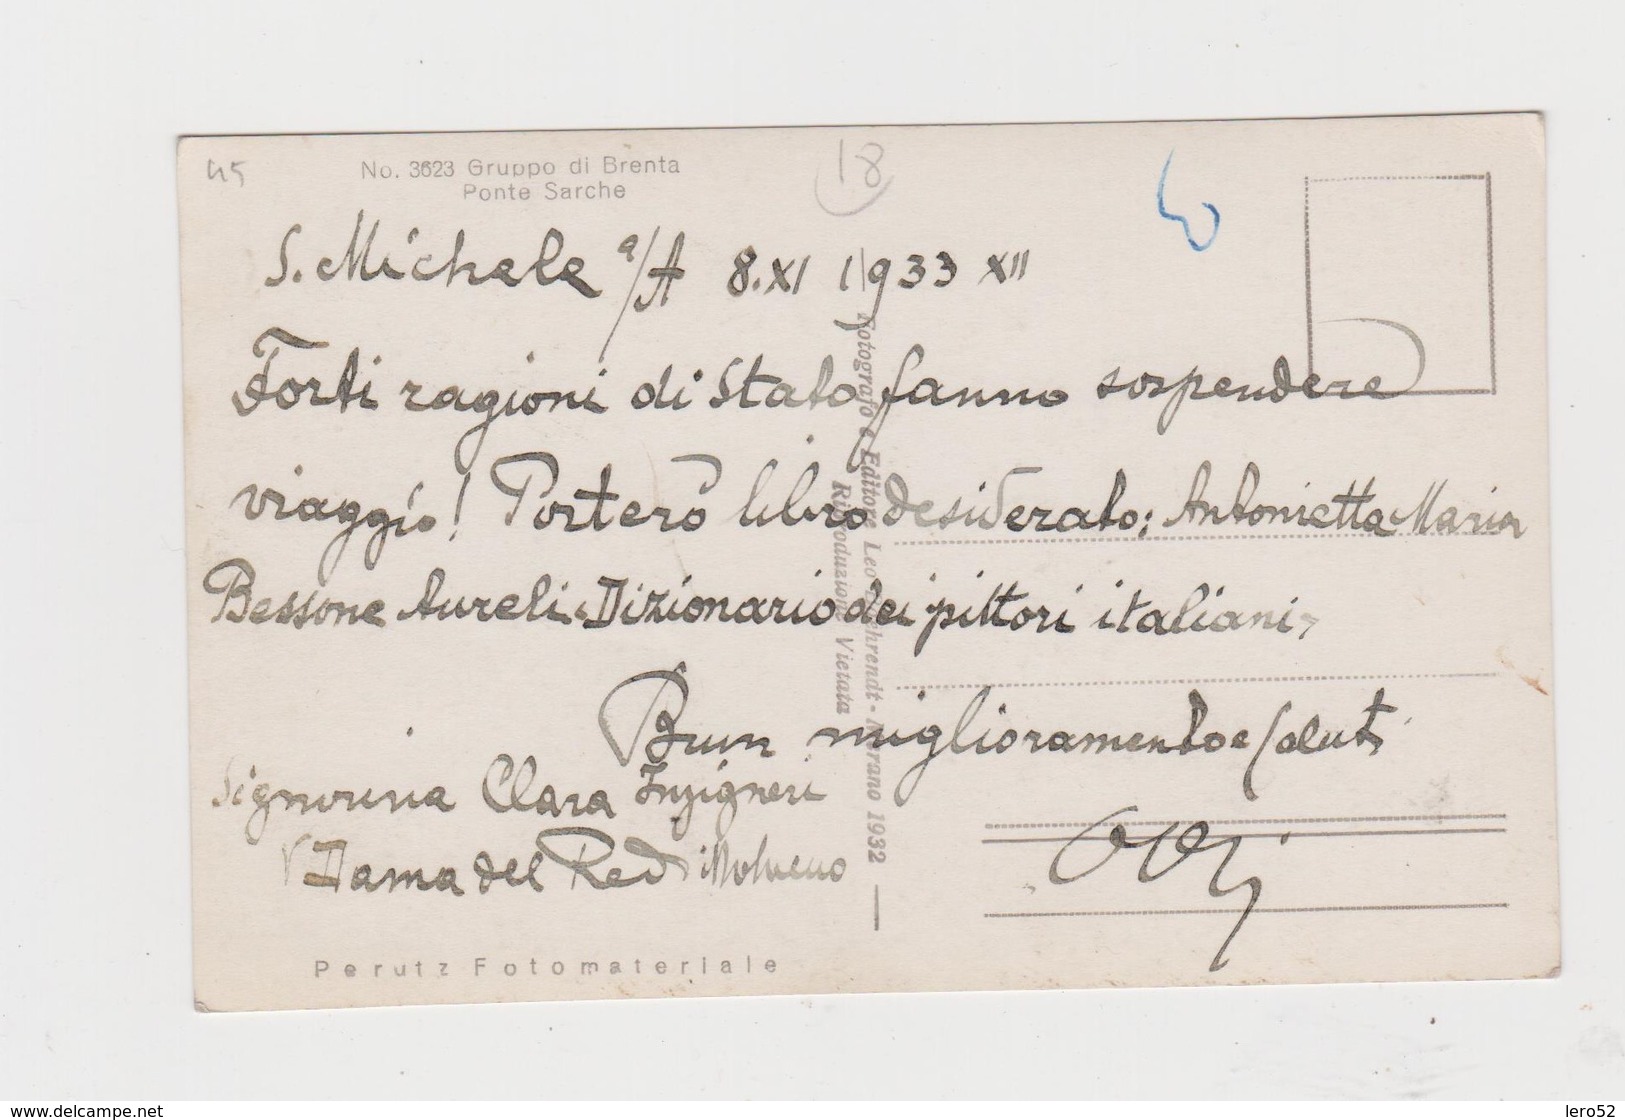 45
No. 3623 Gruppo di Brenta
Ponte Sarche
18
S. Michele a/A 8.XI 1933 XII
Forti ragioni di Stato fanno sospendere
viaggio! Porterò libro desiderato: Antonietta Maria
Bessone Aureli "Dizionario dei pittori italiani"
Buon miglioramento e saluti
Signorina Clara Inzigneri
Dama del Re Molveno
Fotografo e Editore Leo Baehrendt - Merano 1932
Riproduzione Vietata
Perutz Fotomateriale
www.delcampe.net
lero52